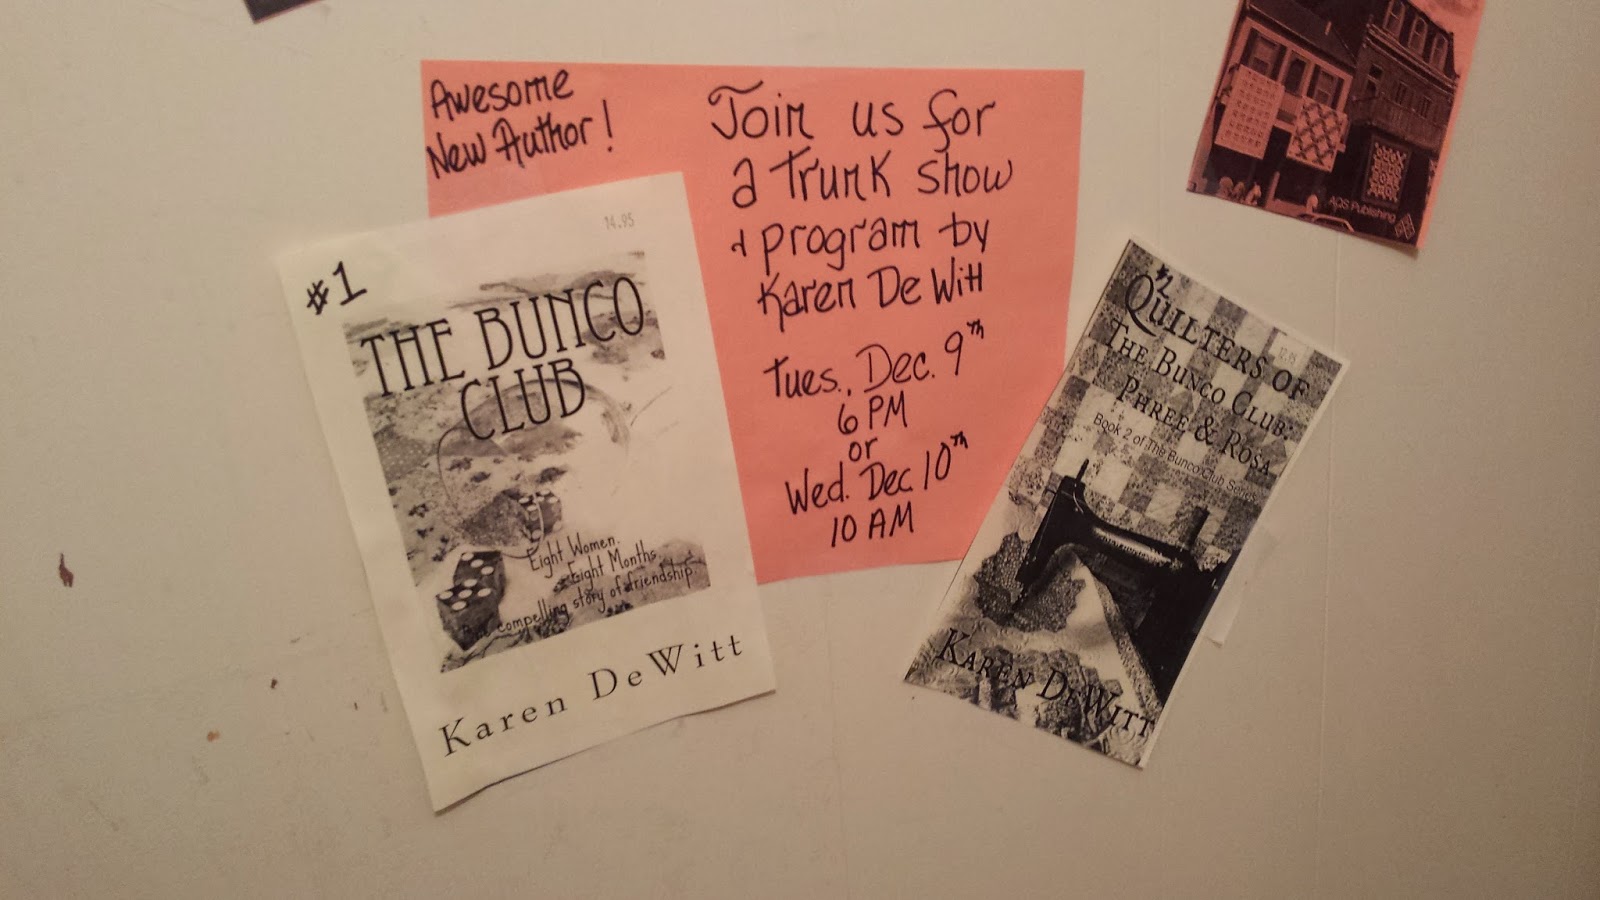 Awesome
New Author!
Join us for
a trunk show
& program by
Karen DeWitt
Tues., Dec. 9th
6 PM
or
Wed. Dec. 10th
10 AM
#1
14.95
THE BUNCO
CLUB
Eight Women.
Eight Months
compelling story of friendship.
Karen DeWitt
QUILTERS OF
THE BUNCO CLUB:
PHREE & ROSA
Book 2 of The Bunco Club Series
KAREN DEWITT
AQS Publishing